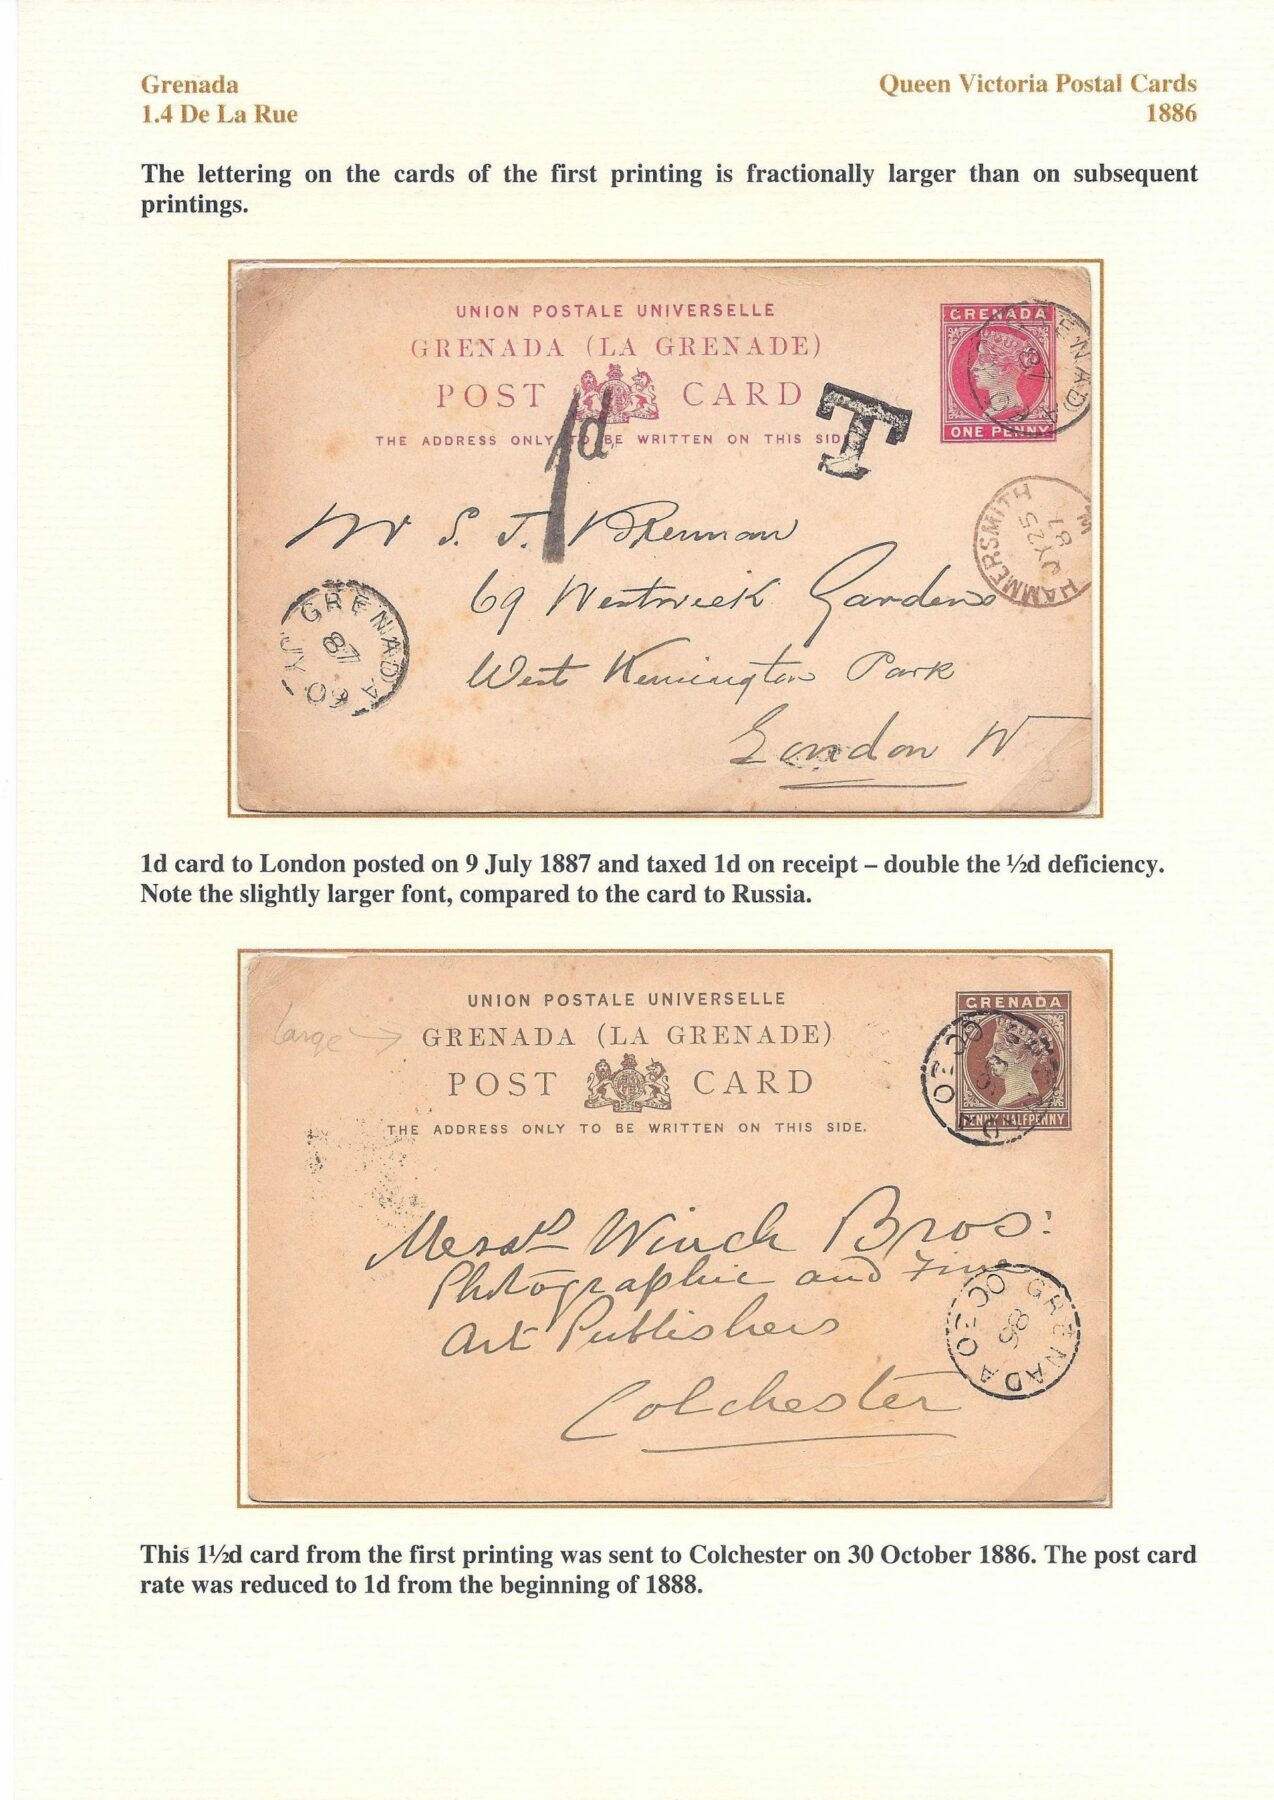 Grenada
Queen Victoria Postal Cards
1.4 De La Rue
1886
The lettering on the cards of the first printing is fractionally larger than on subsequent
printings.
UNION POSTALE UNIVERSELLE
GRENADA (LA GRENADE)
POST CARD
THE ADDRESS ONLY TO BE WRITTEN ON THIS SIDE
GRENADA
ONE PENNY
GRENADA
87
1d
T
HAMMERSMITH
JY 25
87
Mr S. J. Brennan
69 Westwick Gardens
West Kensington Park
London W
GRENADA
JY 09
87
1d card to London posted on 9 July 1887 and taxed 1d on receipt – double the ½d deficiency.
Note the slightly larger font, compared to the card to Russia.
UNION POSTALE UNIVERSELLE
Large →
GRENADA (LA GRENADE)
POST CARD
THE ADDRESS ONLY TO BE WRITTEN ON THIS SIDE.
GRENADA
PENNY HALFPENNY
Messrs Winch Bros:
Photographic and Fine
Art Publishers
Colchester
GRENADA
OC 30
86
This 1½d card from the first printing was sent to Colchester on 30 October 1886. The post card
rate was reduced to 1d from the beginning of 1888.